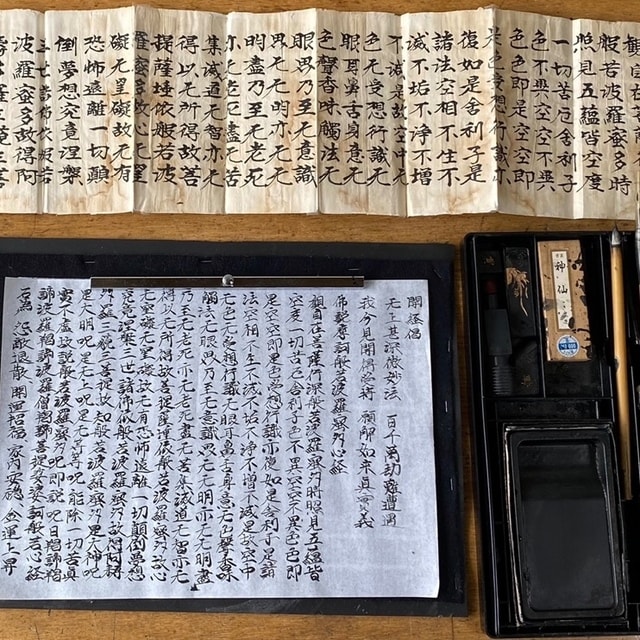 般若波羅蜜多時
照見五蘊皆空度
一切苦厄舍利子
色不異空空不異
色色即是空空即
是色受想行識亦
復如是舍利子是
諸法空相不生不
滅不垢不淨不增
不減是故空中无
色无受想行識无
眼耳鼻舌身意无
色聲香味觸法无
眼界乃至无意識
界无无明亦无无
明盡乃至无老死
亦无老死盡无苦
集滅道无智亦无
得以无所得故菩
提薩埵依般若波
羅蜜多故心无罣
礙无罣礙故无有
恐怖遠離一切顛
倒夢想究竟涅槃
三世諸佛依般若
波羅蜜多故得阿
耨多羅三藐三菩
開経偈
无上甚深微妙法 百千萬劫難遭遇
我今見聞得受持 願解如来真實義
佛説摩訶般若波羅蜜多心経
觀自在菩薩行深般若波羅蜜多時照見五蘊皆
空度一切苦厄舍利子色不異空空不異色色即
是空空即是色受想行識亦復如是舍利子是諸
法空相不生不滅不垢不淨不增不減是故空中
无色无受想行識无眼耳鼻舌身意无色聲香味
觸法无眼界乃至无意識界无无明亦无无明盡
乃至无老死亦无老死盡无苦集滅道无智亦无
得以无所得故菩提薩埵依般若波羅蜜多故心
无罣礙无罣礙故无有恐怖遠離一切顛倒夢想
究竟涅槃三世諸佛依般若波羅蜜多故得阿耨
多羅三藐三菩提故知般若波羅蜜多是大神呪
是大明呪是无上呪是无等等呪能除一切苦真
實不虚故説般若波羅蜜多呪即説呪曰揭諦揭
諦波羅揭諦波羅僧揭諦菩提娑婆訶般若心経
為 怨敵退散 開運招福 家内安穏 金運上昇
神仙